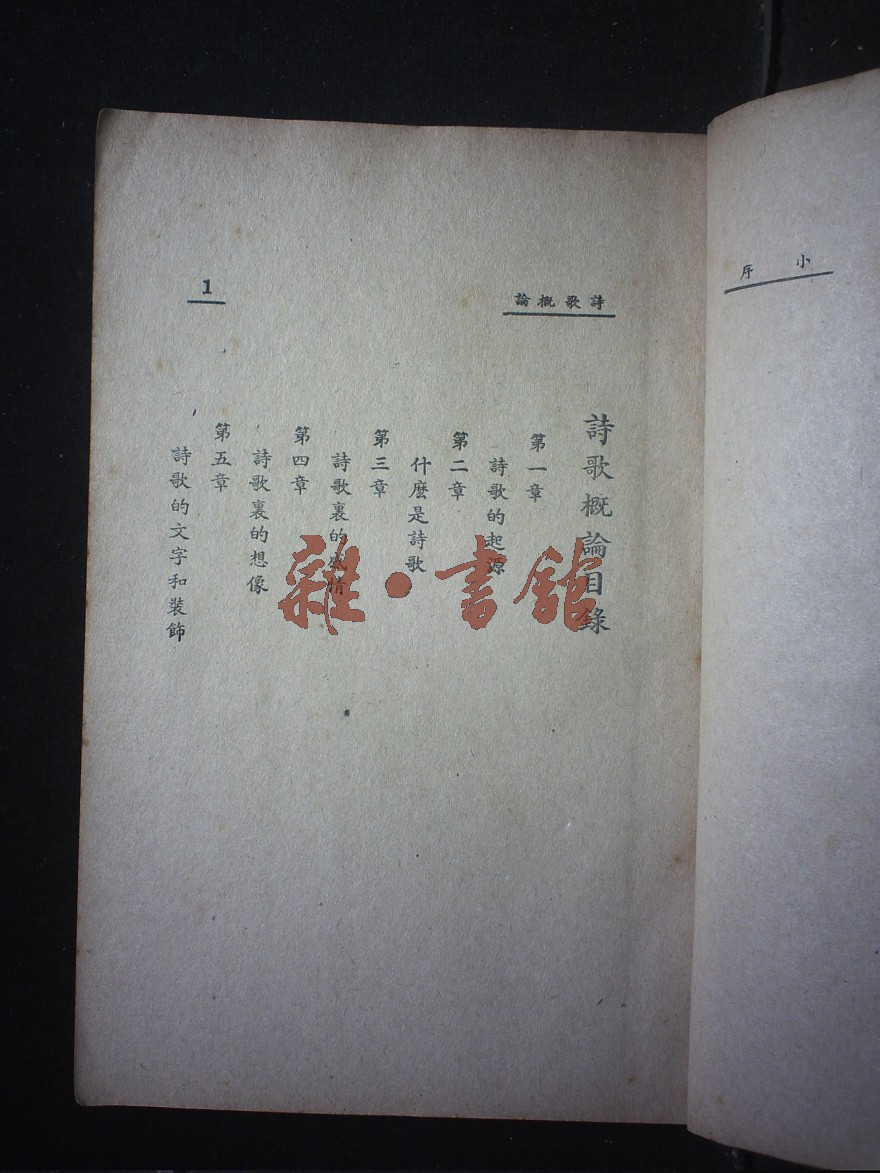 小序
詩歌概論
1
詩歌概論目錄
第一章
詩歌的起源
第二章
什麼是詩歌
第三章
詩歌裏的感情
第四章
詩歌裏的想像
第五章
詩歌的文字和裝飾
雜·書館